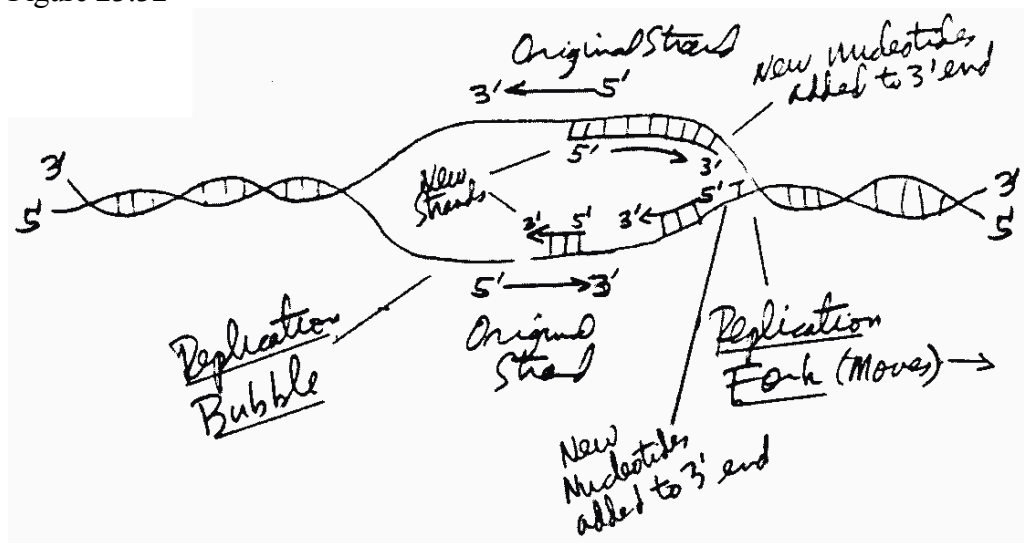 Original Strand
3' ← 5'
New nucleotides
added to 3' end
3'
5'
5' → 3'
New
Strands
3' ← 5'
3' ← 5'
3'
5'
5' → 3'
Original
Strand
Replication
Bubble
Replication
Fork (Moves) →
New
Nucleotides
added to 3' end